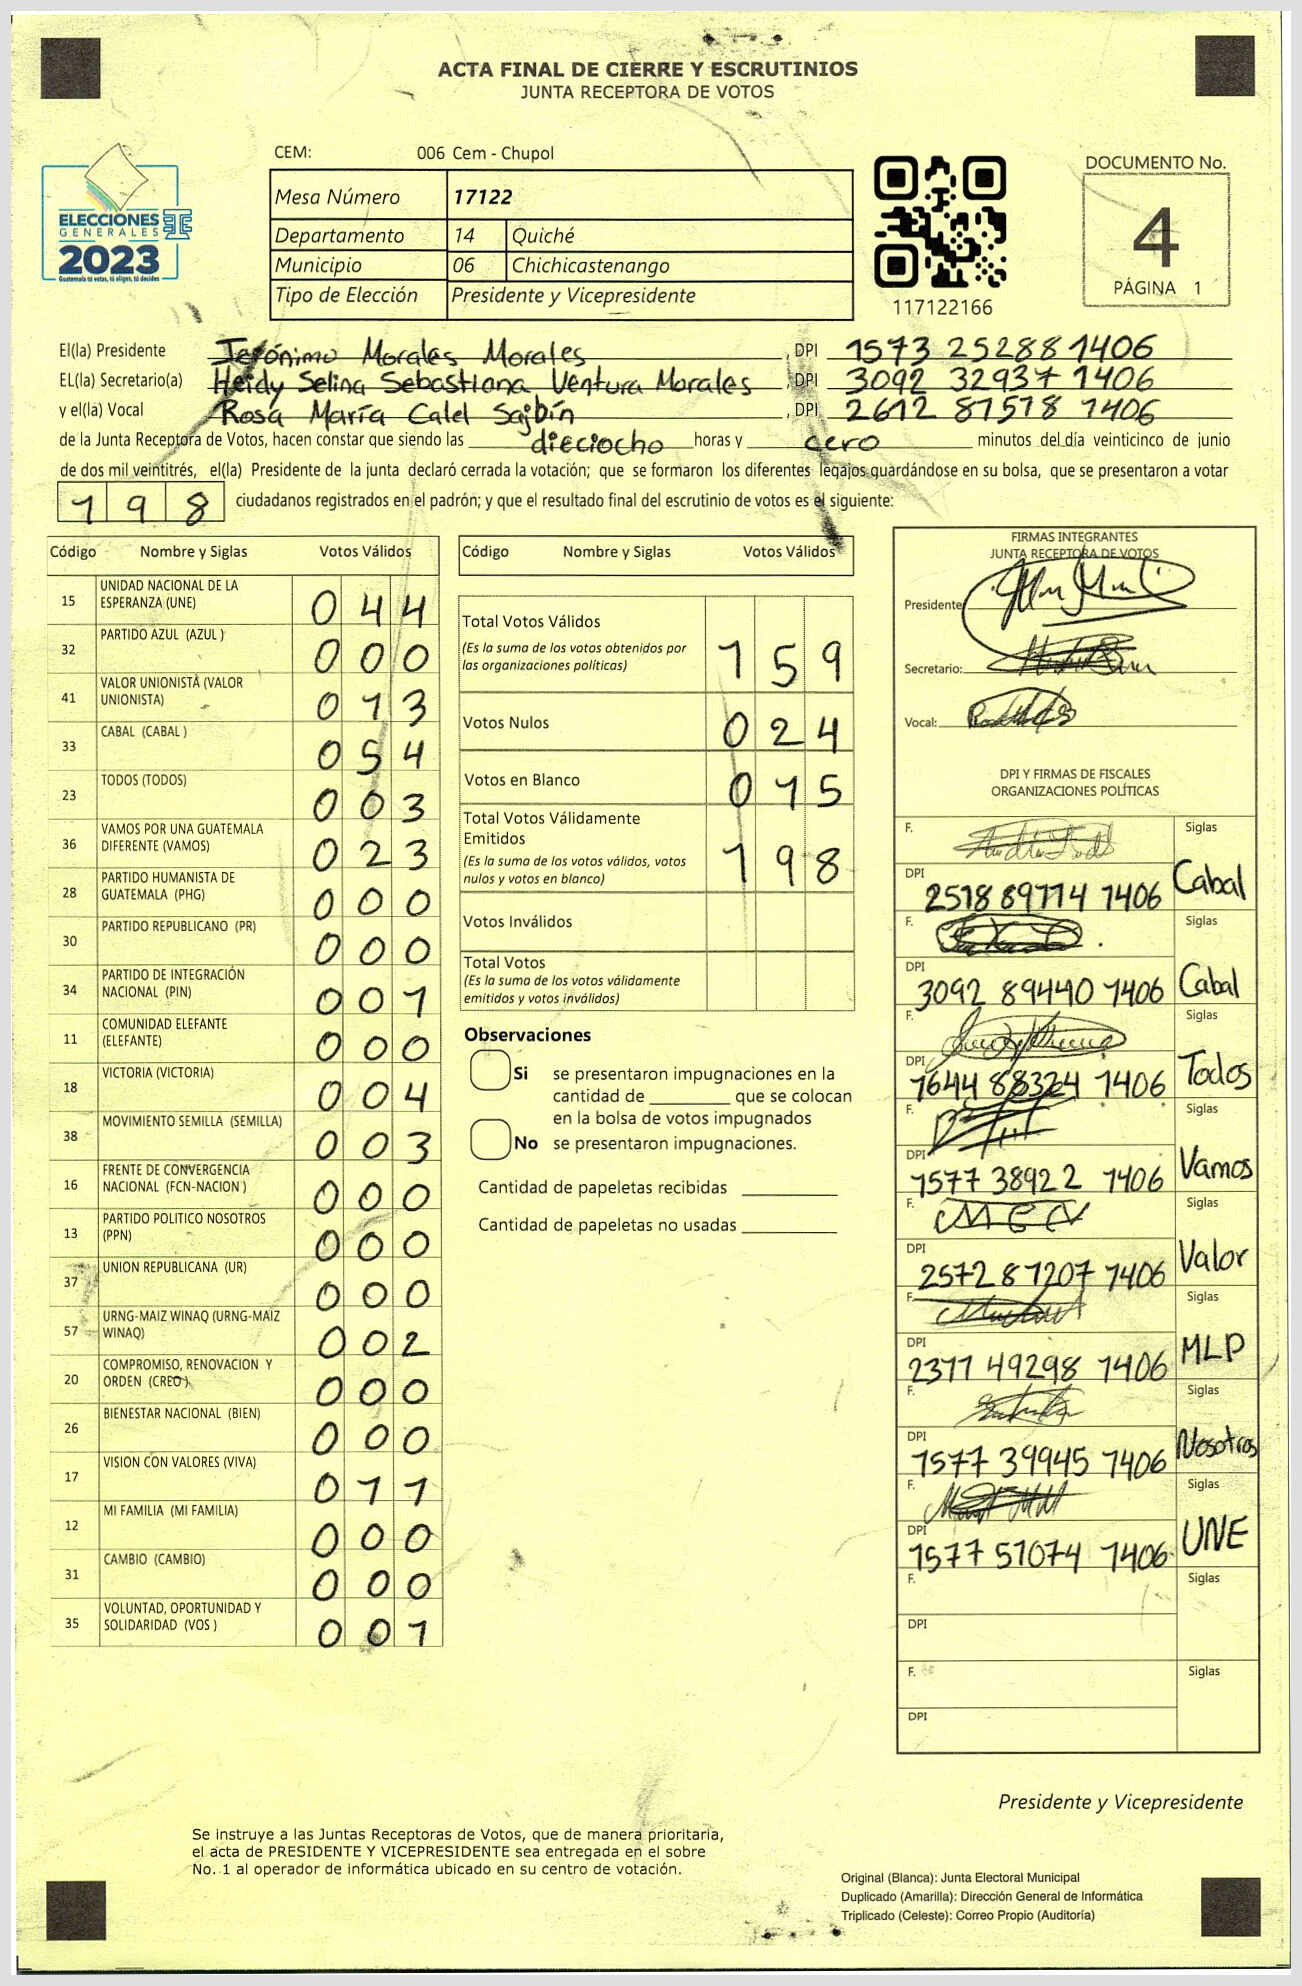 ACTA FINAL DE CIERRE Y ESCRUTINIOS
JUNTA RECEPTORA DE VOTOS
ELECCIONES
GENERALES
2023
Guatemala tú votas, tú eliges, tú decides
CEM: 006 Cem - Chupol
Mesa Número 17122
Departamento 14 Quiché
Municipio 06 Chichicastenango
Tipo de Elección Presidente y Vicepresidente
117122166
DOCUMENTO No.
4
PÁGINA 1
El(la) Presidente Jerónimo Morales Morales , DPI 1573 25288 1406
EL(la) Secretario(a) Heidy Selina Sebastiana Ventura Morales , DPI 3092 32937 1406
y el(la) Vocal Rosa María Calel Sajbín , DPI 2612 87578 1406
de la Junta Receptora de Votos, hacen constar que siendo las dieciocho horas y cero minutos del día veinticinco de junio
de dos mil veintitrés, el(la) Presidente de la junta declaró cerrada la votación; que se formaron los diferentes legajos guardándose en su bolsa, que se presentaron a votar
198 ciudadanos registrados en el padrón; y que el resultado final del escrutinio de votos es el siguiente:
Código Nombre y Siglas Votos Válidos
15 UNIDAD NACIONAL DE LA ESPERANZA (UNE) 044
32 PARTIDO AZUL (AZUL ) 000
41 VALOR UNIONISTA (VALOR UNIONISTA) 013
33 CABAL (CABAL ) 054
23 TODOS (TODOS) 003
36 VAMOS POR UNA GUATEMALA DIFERENTE (VAMOS) 023
28 PARTIDO HUMANISTA DE GUATEMALA (PHG) 000
30 PARTIDO REPUBLICANO (PR) 000
34 PARTIDO DE INTEGRACIÓN NACIONAL (PIN) 001
11 COMUNIDAD ELEFANTE (ELEFANTE) 000
18 VICTORIA (VICTORIA) 004
38 MOVIMIENTO SEMILLA (SEMILLA) 003
16 FRENTE DE CONVERGENCIA NACIONAL (FCN-NACION ) 000
13 PARTIDO POLITICO NOSOTROS (PPN) 000
37 UNION REPUBLICANA (UR) 000
57 URNG-MAIZ WINAQ (URNG-MAIZ WINAQ) 002
20 COMPROMISO, RENOVACION Y ORDEN (CREO ) 000
26 BIENESTAR NACIONAL (BIEN) 000
17 VISION CON VALORES (VIVA) 011
12 MI FAMILIA (MI FAMILIA) 000
31 CAMBIO (CAMBIO) 000
35 VOLUNTAD, OPORTUNIDAD Y SOLIDARIDAD (VOS ) 001
Código Nombre y Siglas Votos Válidos
Total Votos Válidos 159
(Es la suma de los votos obtenidos por
las organizaciones políticas)
Votos Nulos 024
Votos en Blanco 015
Total Votos Válidamente
Emitidos 198
(Es la suma de los votos válidos, votos
nulos y votos en blanco)
Votos Inválidos
Total Votos
(Es la suma de los votos válidamente
emitidos y votos inválidos)
Observaciones
Si se presentaron impugnaciones en la
cantidad de que se colocan
en la bolsa de votos impugnados
No se presentaron impugnaciones.
Cantidad de papeletas recibidas
Cantidad de papeletas no usadas
FIRMAS INTEGRANTES
JUNTA RECEPTORA DE VOTOS
Presidente:
Secretario:
Vocal:
DPI Y FIRMAS DE FISCALES
ORGANIZACIONES POLÍTICAS
F. Siglas
DPI 2518 89774 1406 Cabal
F. Siglas
DPI 3092 89440 1406 Cabal
F. Siglas
DPI 1644 88324 1406 Todos
F. Siglas
DPI 1577 38922 1406 Vamos
F. Siglas
DPI 2572 87207 1406 Valor
F. Siglas
DPI 2377 49298 1406 MLP
F. Siglas
DPI 1577 39945 1406 Nosotros
F. Siglas
DPI 1577 57074 1406 UNE
F. Siglas
DPI
F. Siglas
DPI
Presidente y Vicepresidente
Se instruye a las Juntas Receptoras de Votos, que de manera prioritaria,
el acta de PRESIDENTE Y VICEPRESIDENTE sea entregada en el sobre
No. 1 al operador de informática ubicado en su centro de votación.
Original (Blanca): Junta Electoral Municipal
Duplicado (Amarilla): Dirección General de Informática
Triplicado (Celeste): Correo Propio (Auditoría)